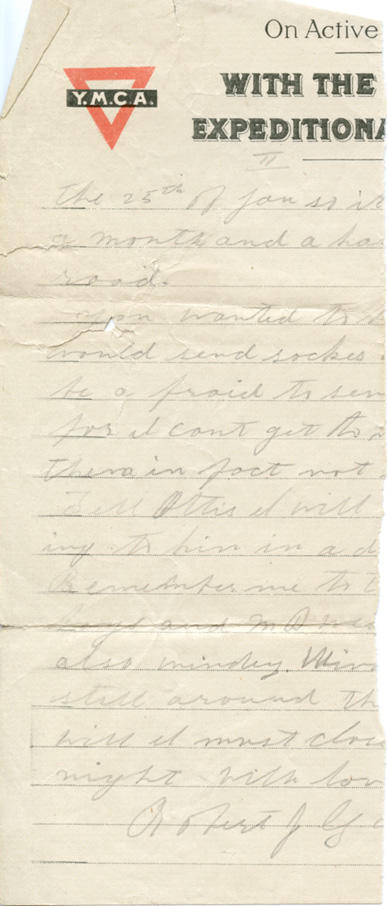 On Active
Y.M.C.A.
WITH THE
EXPEDITIONA
II
the 25th of Jan so it
a month and a ha
road.
you wanted to
would send sockes
be a fraid to sen
for I cant get
them in fact not
Tell Ottis I will
ing to him in a d
Remember me to
boys and
also mindey.
still around th
will I must clos
night with lov
Robert J